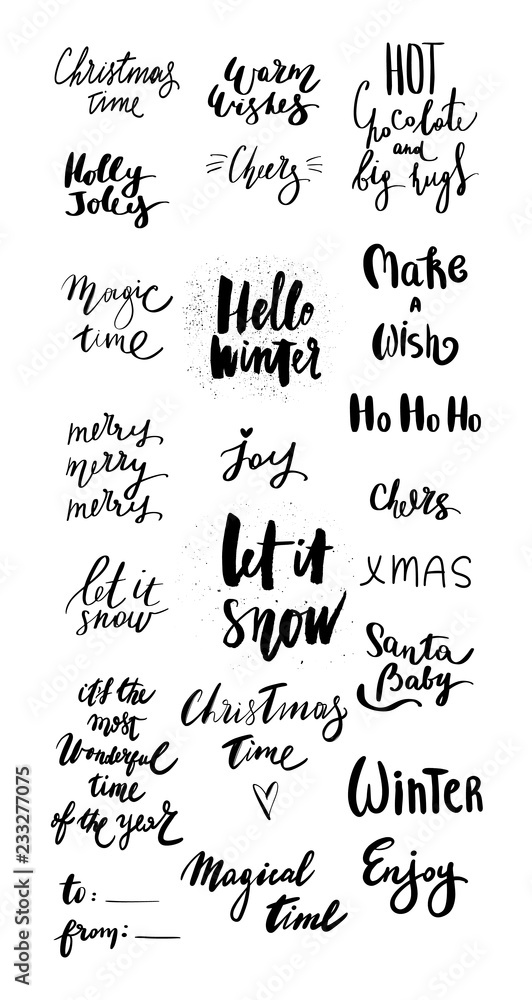 Christmas
time
Holly
Joley
Magic
time
merry
merry
merry
let it
snow
it's the
most
Wonderful
time
of the year
to: ___
from: ___
Warm
Wishes
Cheers
Hello
winter
joy
let it
snow
Christmas
Time
Magical
time
HOT
Chocolate
and
big hugs
Make
A
Wish
Ho Ho Ho
Cheers
XMAS
Santa
Baby
Winter
Enjoy
Adobe Stock | #233277075